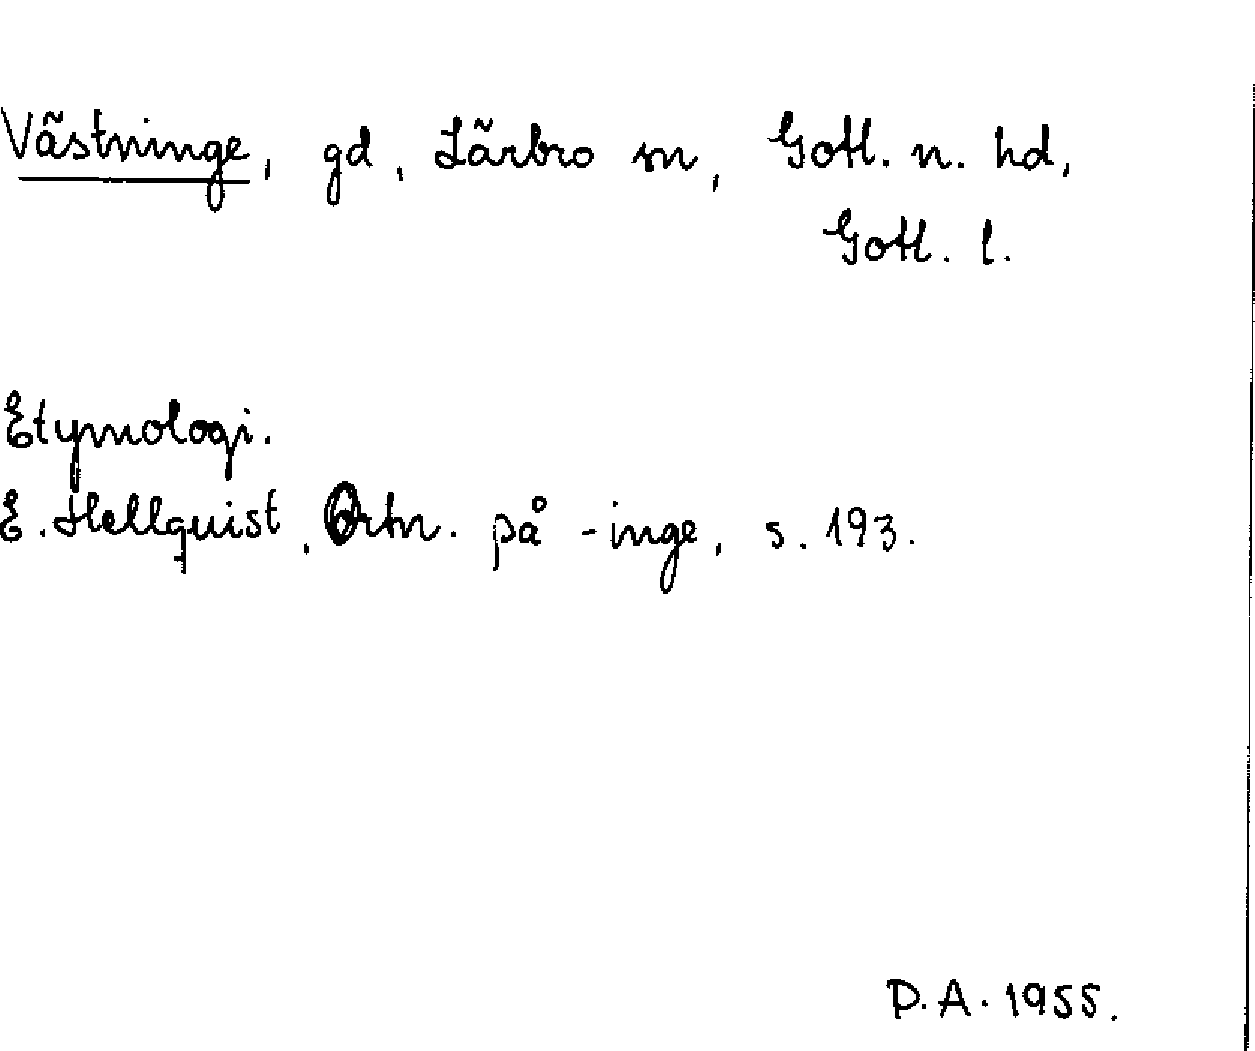 Västninge, gd, Lärbro sn, Gotl. n. hd,
Gotl. l.
Etymologi.
E. Hellquist, Ortn. på -inge, s. 193.
D.A. 1955.